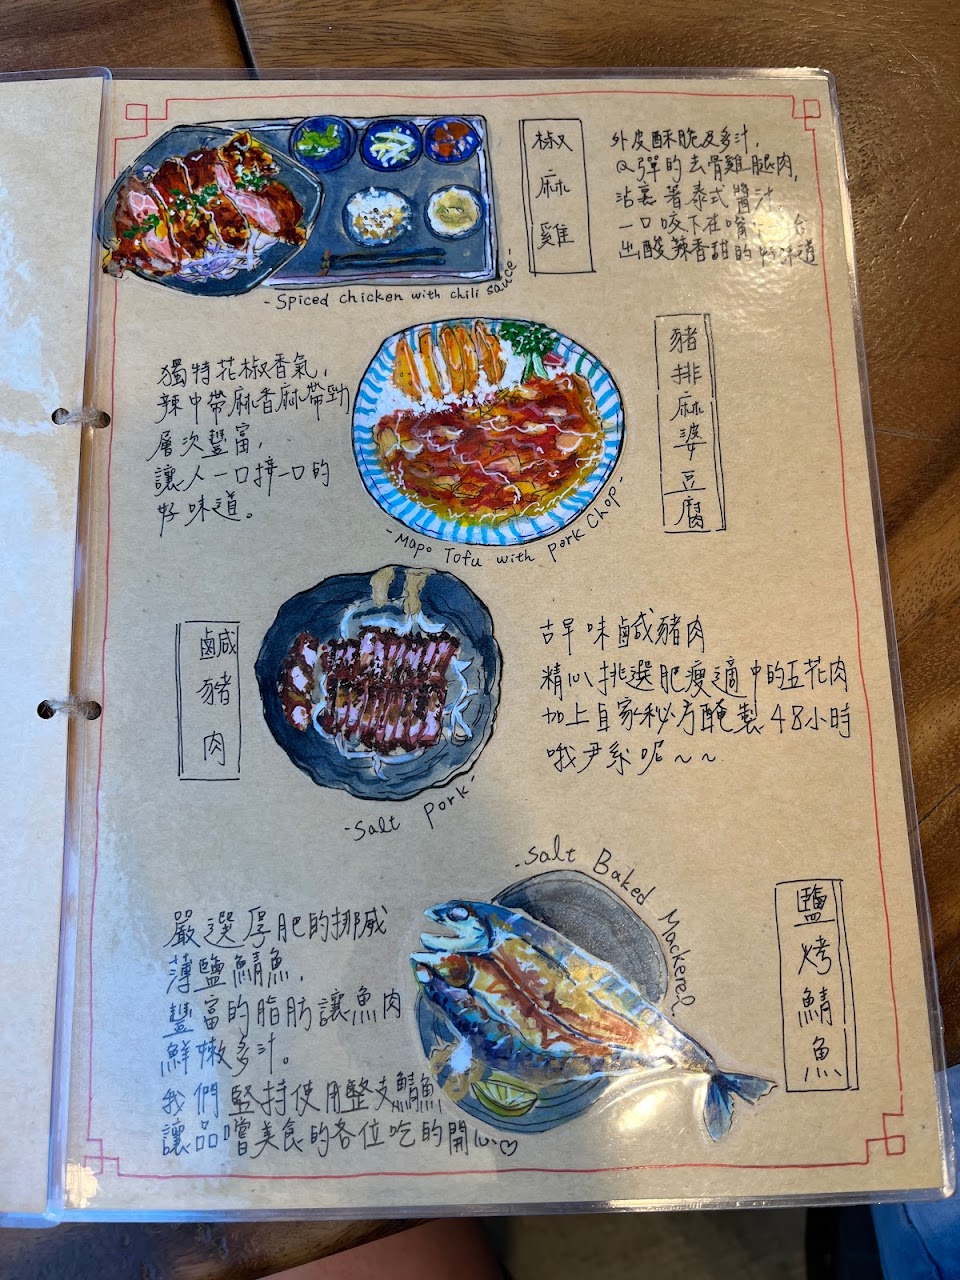 椒麻雞
外皮酥脆及多汁,
Q彈的去骨雞腿肉,
沾裹著泰式醬汁,
一口咬下在嘴
出酸辣香甜的好味道
- Spiced chicken with chili sauce -
豬排麻婆豆腐
獨特花椒香氣,
辣中帶麻香麻帶勁
層次豐富,
讓人一口接一口的
好味道。
- Mapo Tofu with Pork Chop -
鹹豬肉
古早味鹹豬肉
精心挑選肥瘦適中的五花肉
加上自家秘方醃製48小時
哦尹系呢~~
- Salt Pork -
- Salt Baked Mackerel
鹽烤鯖魚
嚴選厚肥的挪威
薄鹽鯖魚,
豐富的脂肪讓魚肉
鮮嫩多汁。
我們堅持使用整支鯖魚
讓品嚐美食的各位吃的開心♡